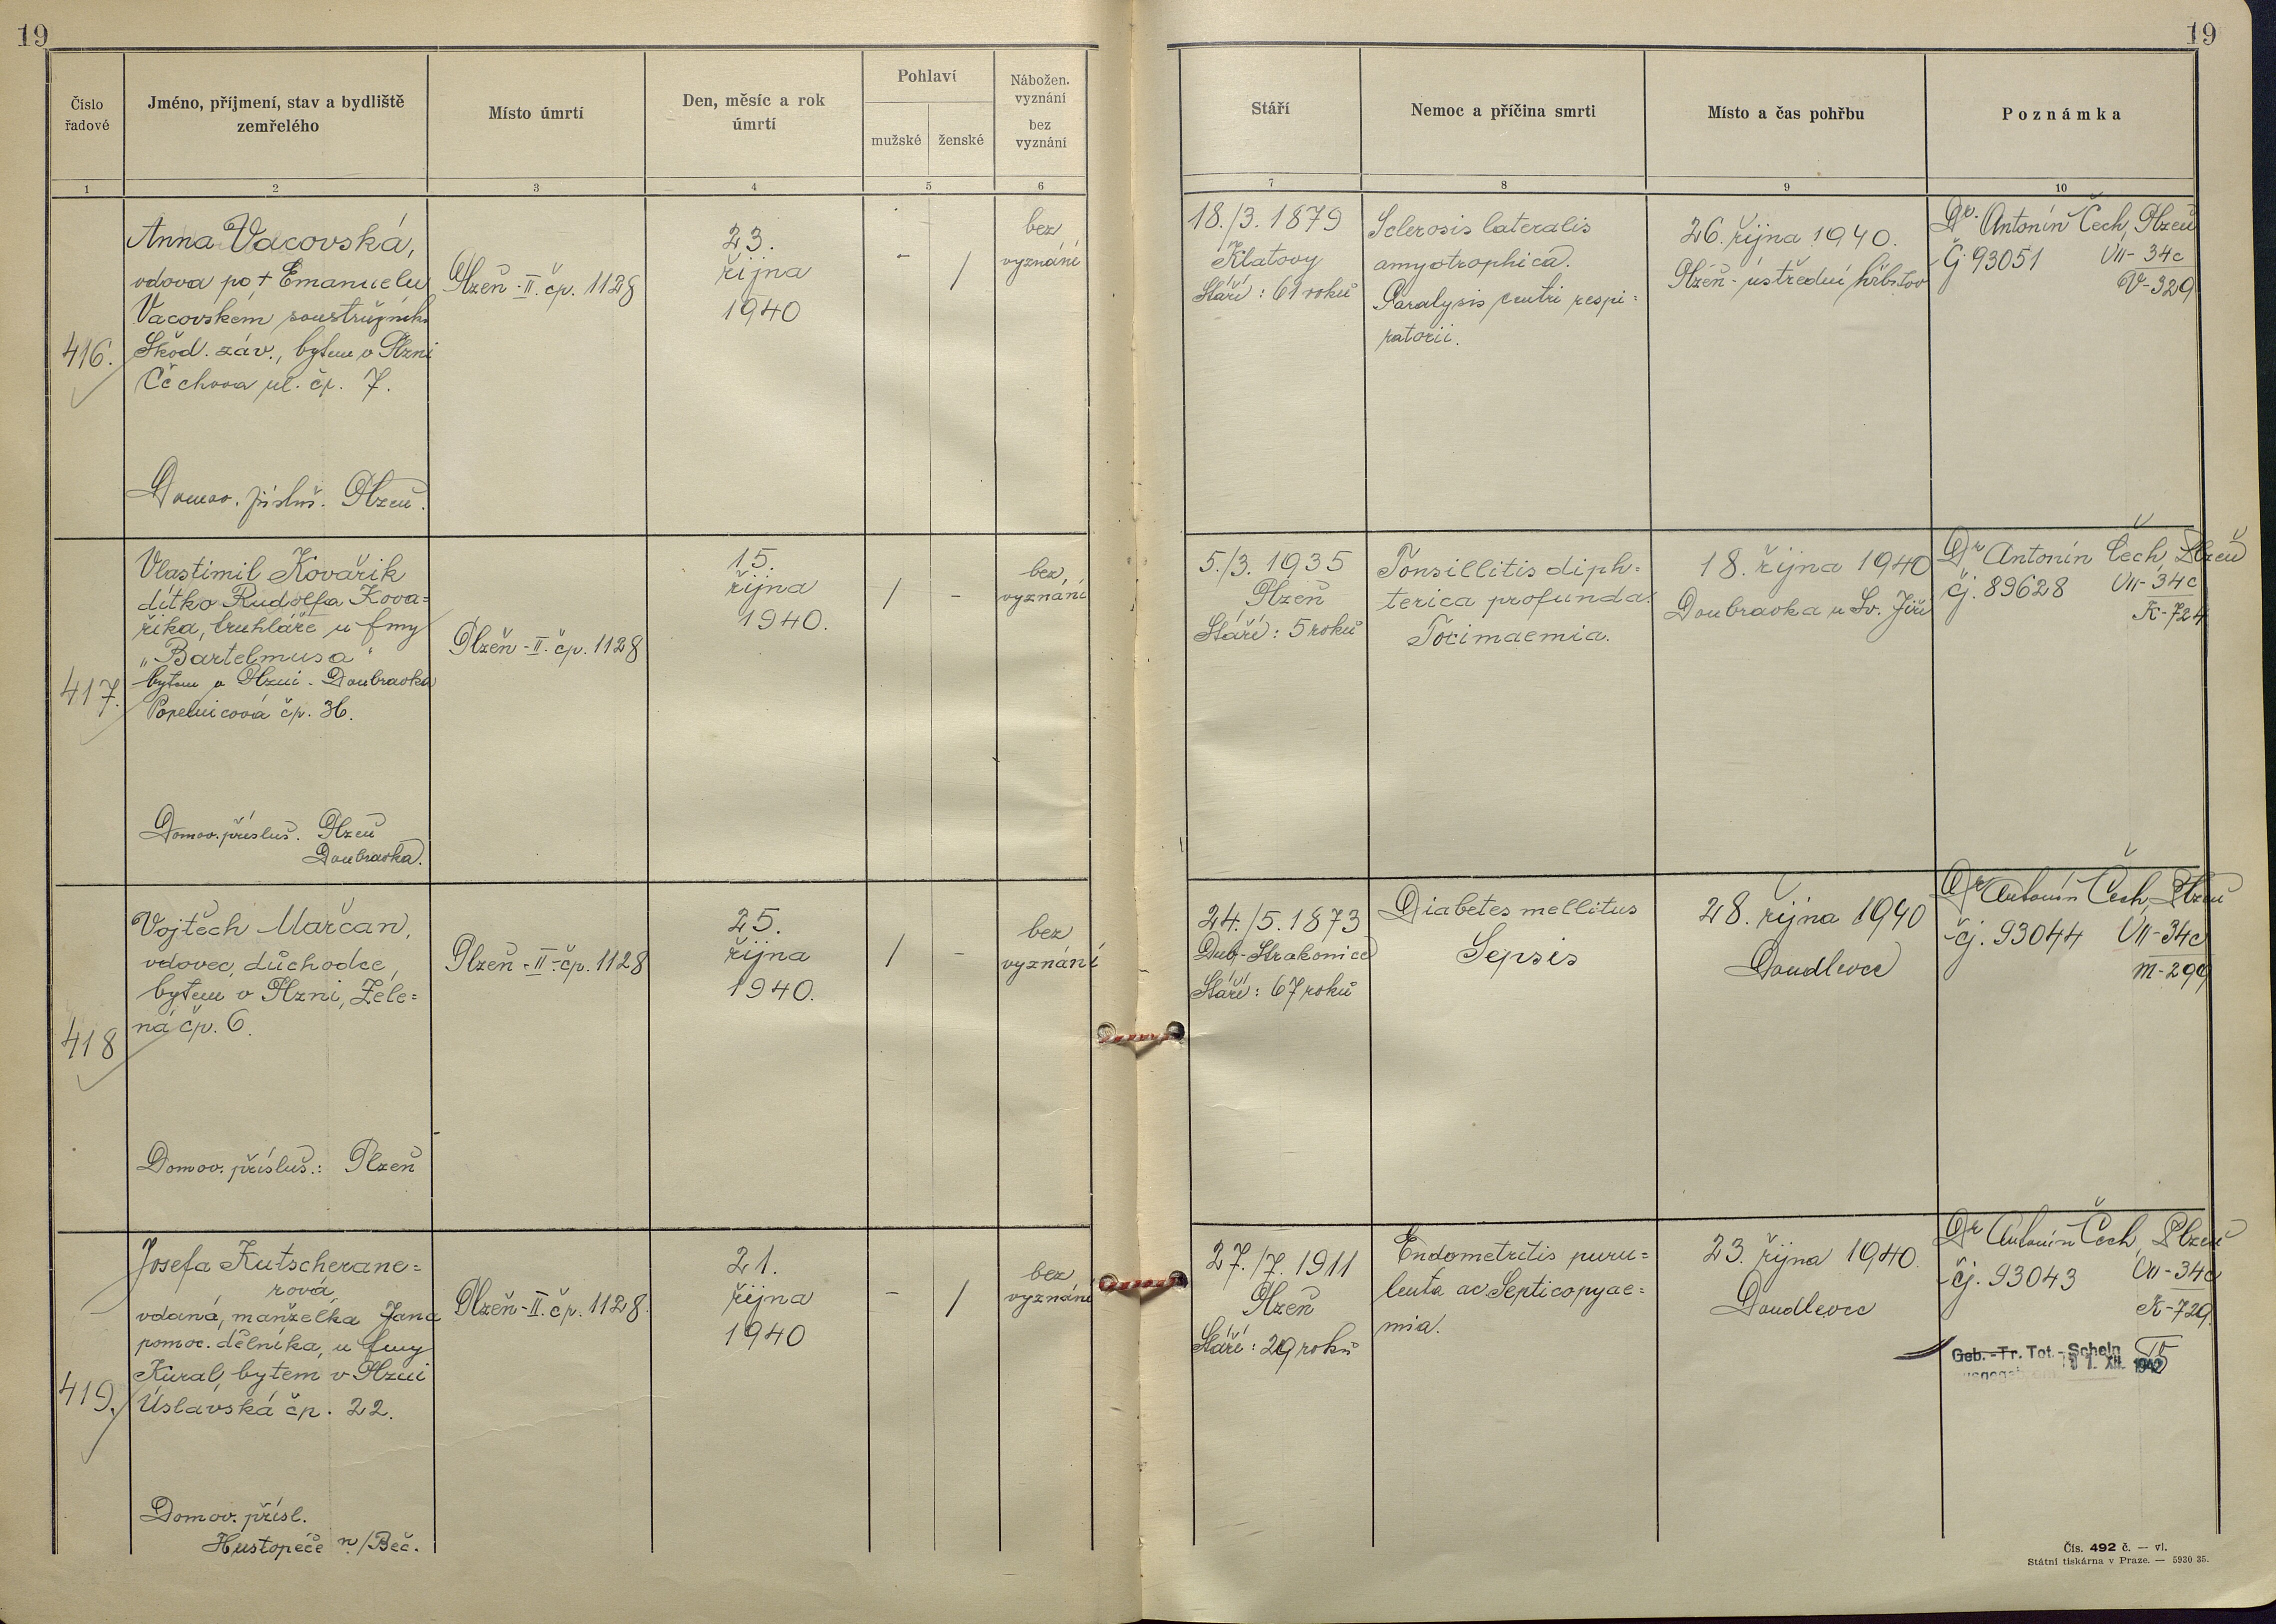 19
Číslo
řadové
Jméno, příjmení, stav a bydliště
zemřelého
Místo úmrtí
Den, měsíc a rok
úmrtí
Pohlaví
mužské
ženské
Nábožen.
vyznání
bez
vyznání
1
2
3
4
5
6
416.
Anna Vacovská,
vdova po † Emanuelu
Vacovském soustružníku
Škod. záv., bytem v Plzni
Čechova ul. čp. 7.
Domov. přísluš. Plzeň.
Plzeň - II. čp. 1128
23.
října
1940
-
/
bez
vyznání
417.
Vlastimil Kovařík
dítko Rudolfa Kova=
říka, truhláře u fmy
„Bartelmusa"
bytem v Plzni - Doubravka
Popelnicová čp. 36.
Domov. přísluš. Plzeň
Doubravka.
Plzeň - II. čp. 1128
15.
října
1940.
/
-
bez
vyznání
418
Vojtěch Marčan,
vdovec, důchodce,
bytem v Plzni, Zele=
ná čp. 6.
Domov. přísluš.: Plzeň
Plzeň - II - čp. 1128
25.
října
1940.
/
-
bez
vyznání
419.
Josefa Kutscherane=
rová,
vdaná, manželka Jana
pomoc. dělníka, u fmy
Kural, bytem v Plzni
Úslavská čp. 22.
Domov. přísl.
Hustopeče n/Beč.
Plzeň - II. čp. 1128.
21.
října
1940
-
/
bez
vyznání
19
Stáří
Nemoc a příčina smrti
Místo a čas pohřbu
Poznámka
7
8
9
10
18./3. 1879
Klatovy
Stáří: 61 roků
Sclerosis lateralis
amyotrophica.
Paralysis centri respi=
ratorii.
26. října 1940.
Plzeň - ústřední hřbitov
Dr. Antonín Čech, Plzeň
Čj 93051 VII - 34c
V - 329
5./3. 1935
Plzeň
Stáří: 5 roků
Tonsillitis diph=
terica profunda.
Tocimaemia.
18. října 1940
Doubravka u Sv. Jiří
Dr Antonín Čech, Plzeň
čj. 89628 VII - 34c
K - 724
24./5. 1873
Dub - Strakonice
Stáří: 67 roků
Diabetes mellitus
Sepsis
28. října 1940
Doudlevce
Dr Antonín Čech, Plzeň
čj. 93044 VII - 34c
M - 299
27./7. 1911
Plzeň
Stáří: 29 roků
Endometritis puru=
lenta ac Septicopyae=
mia.
23. října 1940.
Doudlevce
Dr Antonín Čech, Plzeň
čj. 93043 VII - 34c
K - 729.
Geb. - Tr. Tot. - Schein
XII. 1942
Čís. 492 č. — vl.
Státní tiskárna v Praze. — 5930 35.